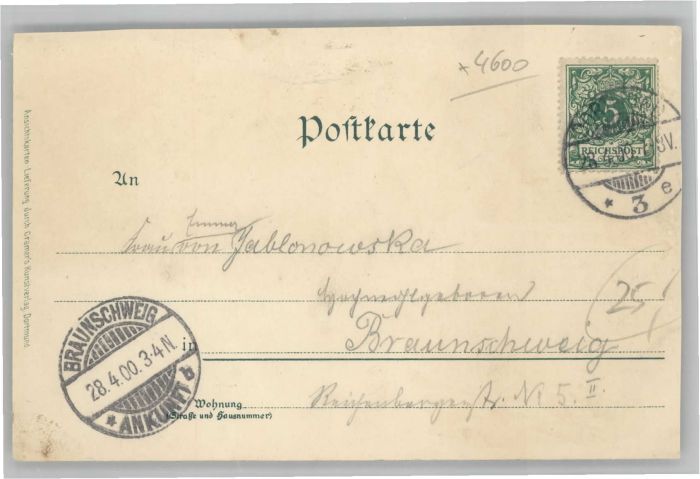 *4600
5
REICHSPOST
* 3 e
Postkarte
An
Emmy
Frau von Jablonowska
Hochwohlgeboren
25
in Braunschweig
Wohnung
(Straße und Hausnummer)
№ 5. II.
BRAUNSCHWEIG
28.4.00.3-4 N.
* ANKUNFT d
Ansichtskarten Lieferung durch Cramer's Kunstverlag, Dortmund